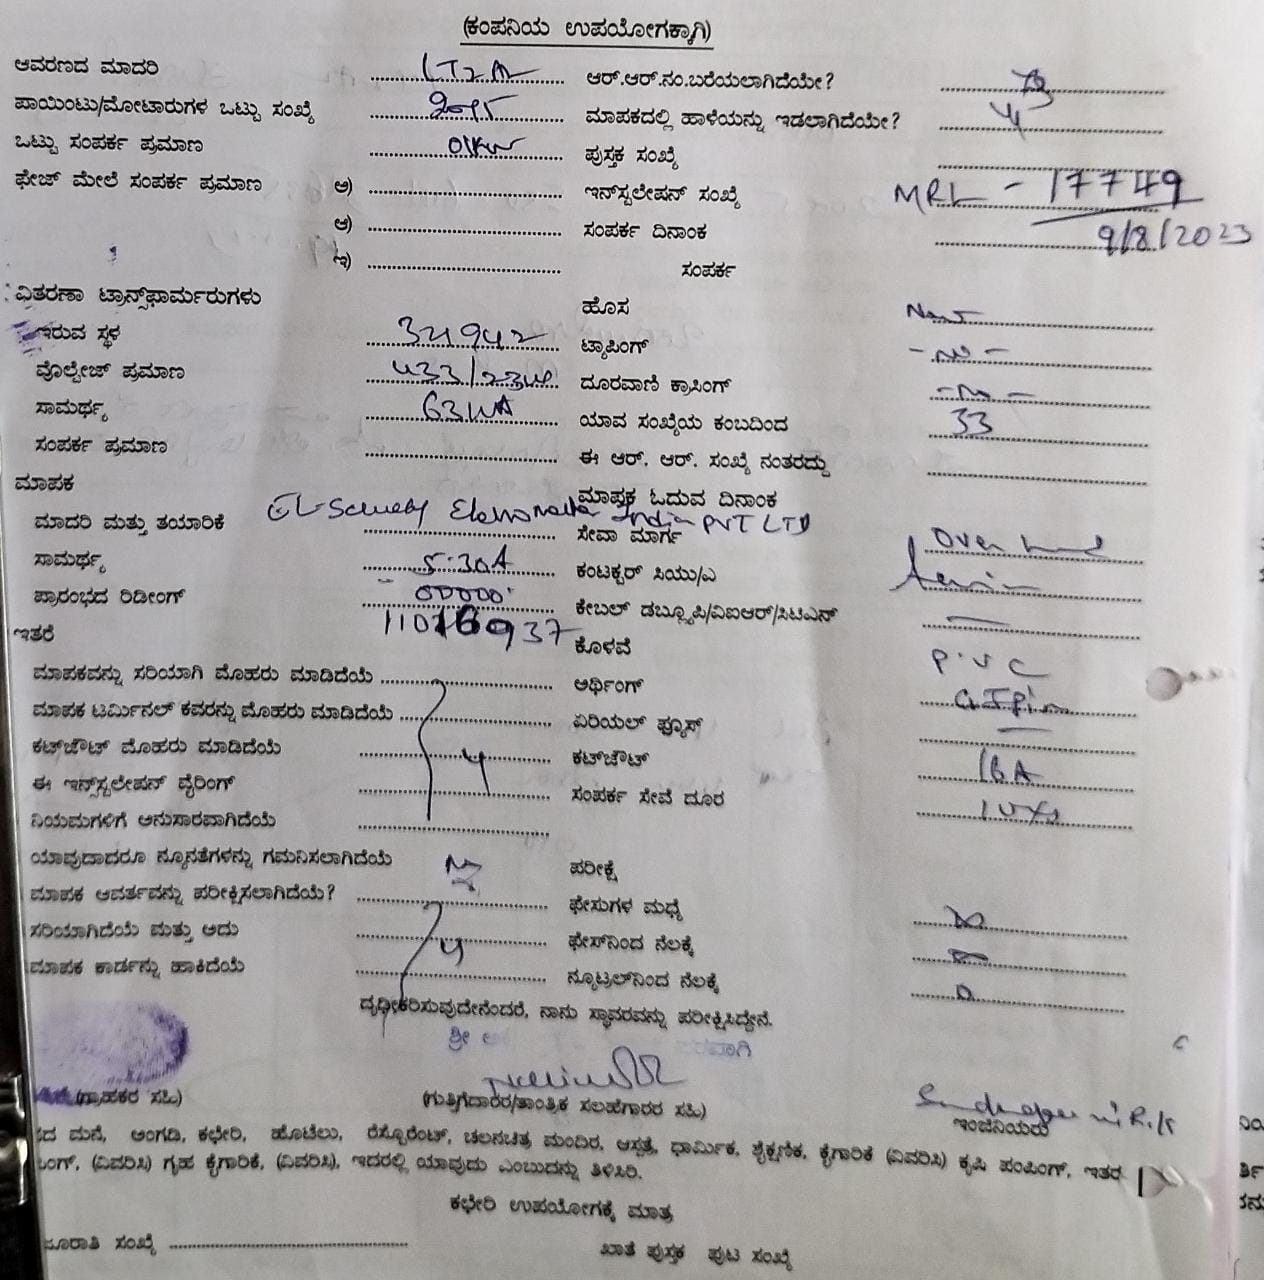 (ಕಂಪನಿಯ ಉಪಯೋಗಕ್ಕಾಗಿ)
ಆವರಣದ ಮಾದರಿ LT2A ಆರ್.ಆರ್.ನಂ.ಬರೆಯಲಾಗಿದೆಯೇ?
ಪಾಯಿಂಟು/ಮೋಟಾರುಗಳ ಒಟ್ಟು ಸಂಖ್ಯೆ ಮಾಪಕದಲ್ಲಿ ಹಾಳೆಯನ್ನು ಇಡಲಾಗಿದೆಯೇ? y
ಒಟ್ಟು ಸಂಪರ್ಕ ಪ್ರಮಾಣ 01KW ಪುಸ್ತಕ ಸಂಖ್ಯೆ
ಫೇಜ್ ಮೇಲೆ ಸಂಪರ್ಕ ಪ್ರಮಾಣ ಅ) ಇನ್‌ಸ್ಟಲೇಷನ್ ಸಂಖ್ಯೆ MRL - 17749
ಆ) ಸಂಪರ್ಕ ದಿನಾಂಕ 9/8/2023
ಇ) ಸಂಪರ್ಕ
ವಿತರಣಾ ಟ್ರಾನ್ಸ್‌ಫಾರ್ಮರುಗಳು ಹೊಸ New
ಇರುವ ಸ್ಥಳ 321942 ಟ್ಯಾಪಿಂಗ್ - no -
ವೊಲ್ಟೇಜ್ ಪ್ರಮಾಣ 433/230 ದೂರವಾಣಿ ಕ್ರಾಸಿಂಗ್ - no -
ಸಾಮರ್ಥ್ಯ 63KVA ಯಾವ ಸಂಖ್ಯೆಯ ಕಂಬದಿಂದ 33
ಸಂಪರ್ಕ ಪ್ರಮಾಣ ಈ ಆರ್. ಆರ್. ಸಂಖ್ಯೆ ನಂತರದ್ದು
ಮಾಪಕ ಮಾಪಕ ಓದುವ ದಿನಾಂಕ
ಮಾದರಿ ಮತ್ತು ತಯಾರಿಕೆ India PVT LTD ಸೇವಾ ಮಾರ್ಗ Over head
ಸಾಮರ್ಥ್ಯ 5-30A ಕಂಟಕ್ಟರ್ ಸಿಯು/ಎ
ಪ್ರಾರಂಭದ ರಿಡೀಂಗ್ 00000 ಕೇಬಲ್ ಡಬ್ಲ್ಯೂಪಿ/ವಿಐಆರ್/ಸಿಟಿಎನ್ —
ಇತರೆ 11016937 ಕೊಳವೆ P.V.C
ಮಾಪಕವನ್ನು ಸರಿಯಾಗಿ ಮೊಹರು ಮಾಡಿದೆಯೆ ಅರ್ಥಿಂಗ್
ಮಾಪಕ ಟರ್ಮಿನಲ್ ಕವರನ್ನು ಮೊಹರು ಮಾಡಿದೆಯೆ ಏರಿಯಲ್ ಫ್ಯೂಸ್ —
ಕಟ್‌ಔಟ್ ಮೊಹರು ಮಾಡಿದೆಯೆ y ಕಟ್‌ಔಟ್ 16A
ಈ ಇನ್‌ಸ್ಟಲೇಷನ್ ವೈರಿಂಗ್ ಸಂಪರ್ಕ ಸೇವೆ ದೂರ
ನಿಯಮಗಳಿಗೆ ಅನುಸಾರವಾಗಿದೆಯೆ
ಯಾವುದಾದರೂ ನ್ಯೂನತೆಗಳನ್ನು ಗಮನಿಸಲಾಗಿದೆಯೆ ಪರೀಕ್ಷೆ
ಮಾಪಕ ಆವರ್ತವನ್ನು ಪರೀಕ್ಷಿಸಲಾಗಿದೆಯೆ? ಫೇಸುಗಳ ಮಧ್ಯೆ
ಸರಿಯಾಗಿದೆಯೆ ಮತ್ತು ಅದು y ಫೇಸ್‌ನಿಂದ ನೆಲಕ್ಕೆ
ಮಾಪಕ ಕಾರ್ಡನ್ನು ಹಾಕಿದೆಯೆ ನ್ಯೂಟ್ರಲ್‌ನಿಂದ ನೆಲಕ್ಕೆ
ದೃಢೀಕರಿಸುವುದೇನೆಂದರೆ, ನಾನು ಸ್ಥಾವರವನ್ನು ಪರೀಕ್ಷಿಸಿದ್ದೇನೆ.
ಶ್ರೀ ಪರವಾಗಿ
(ಗ್ರಾಹಕರ ಸಹಿ) (ಗುತ್ತಿಗೆದಾರರ/ತಾಂತ್ರಿಕ ಸಲಹೆಗಾರರ ಸಹಿ) ಇಂಜಿನಿಯರು
ಮನೆ, ಅಂಗಡಿ, ಕಛೇರಿ, ಹೊಟೆಲು, ರೆಸ್ಟೊರೆಂಟ್, ಚಲನಚಿತ್ರ ಮಂದಿರ, ಆಸ್ಪತ್ರೆ, ಧಾರ್ಮಿಕ, ಶೈಕ್ಷಣಿಕ, ಕೈಗಾರಿಕೆ (ವಿವರಿಸಿ) ಕೃಷಿ ಪಂಪಿಂಗ್, ಇತರ
(ವಿವರಿಸಿ) ಗೃಹ ಕೈಗಾರಿಕೆ, (ವಿವರಿಸಿ), ಇದರಲ್ಲಿ ಯಾವುದು ಎಂಬುದನ್ನು ತಿಳಿಸಿರಿ.
ಕಛೇರಿ ಉಪಯೋಗಕ್ಕೆ ಮಾತ್ರ
ಸಂಖ್ಯೆ ಖಾತೆ ಪುಸ್ತಕ ಪುಟ ಸಂಖ್ಯೆ